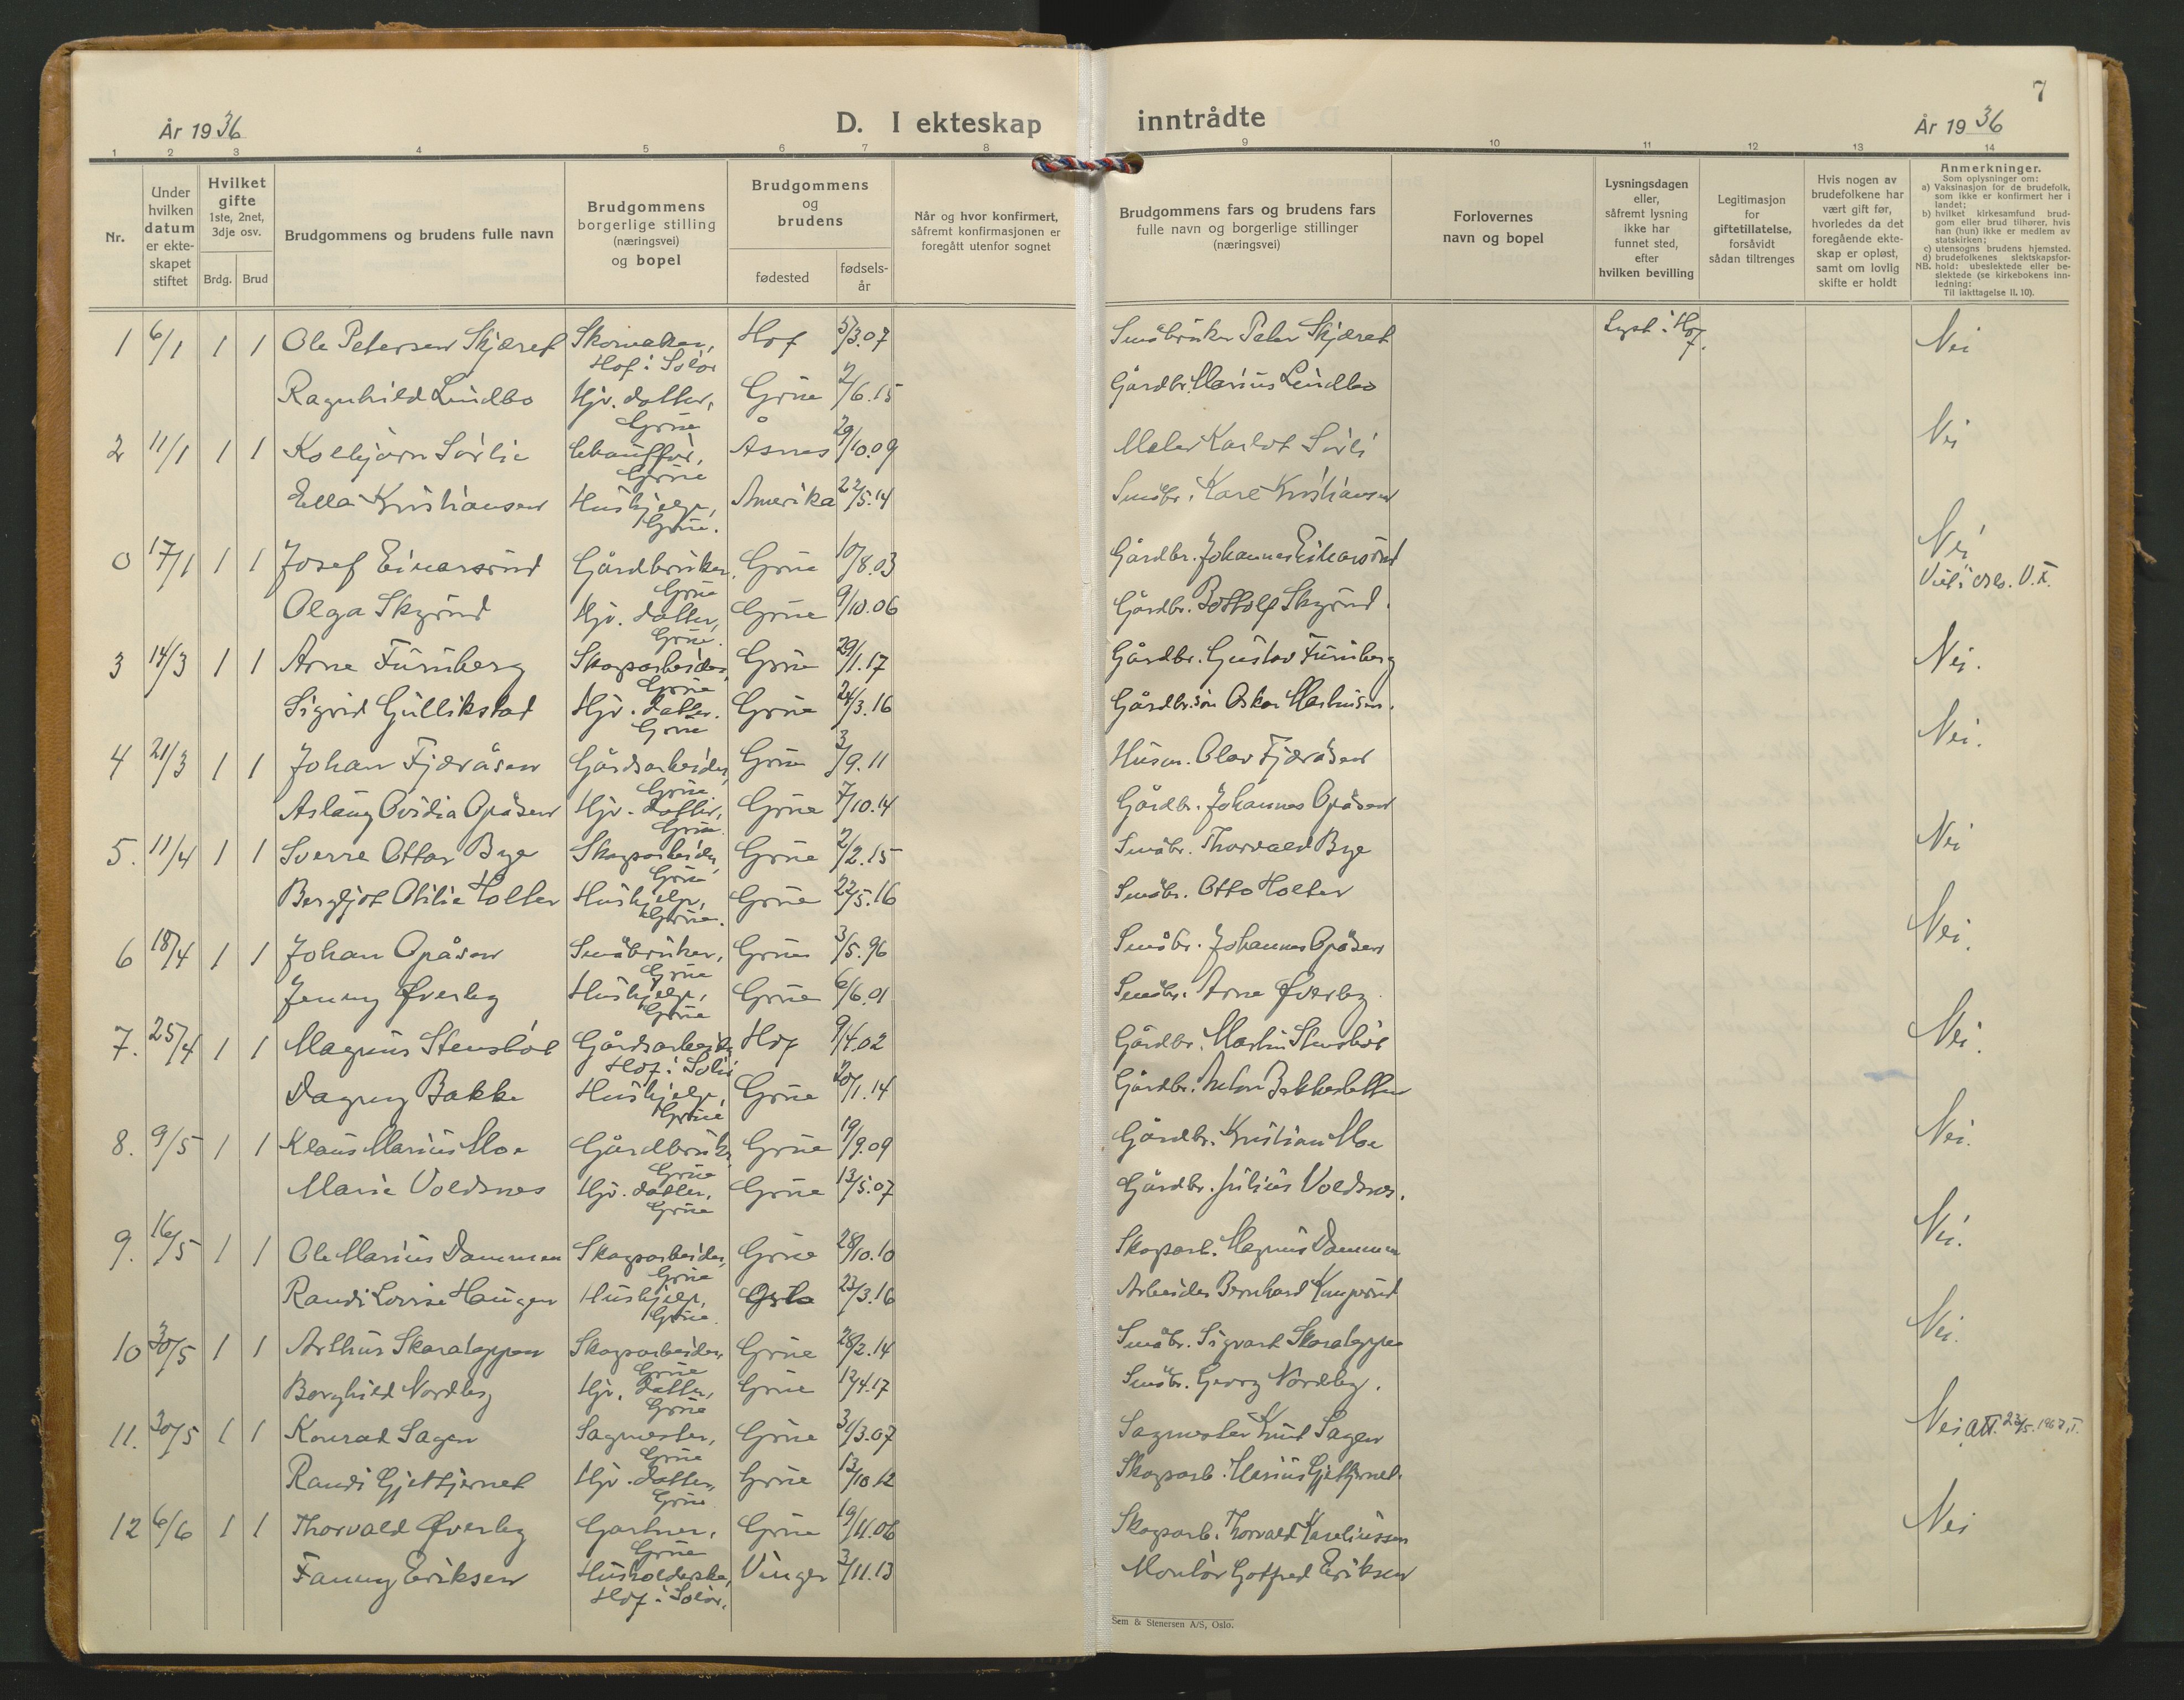 7
År 1936
D. I ekteskap inntrådte
År 1936
1 2 3 4 5 6 7 8 9 10 11 12 13 14
Nr.
Under hvilken datum er ekteskapet stiftet
Hvilket gifte 1ste, 2net, 3dje osv.
Brdg. Brud
Brudgommens og brudens fulle navn
Brudgommens borgerlige stilling (næringsvei) og bopel
Brudgommens og brudens
fødested
fødsels-år
Når og hvor konfirmert, såfremt konfirmasjonen er foregått utenfor sognet
Brudgommens fars og brudens fars fulle navn og borgerlige stillinger (næringsvei)
Forlovernes navn og bopel
Lysningsdagen eller, såfremt lysning ikke har funnet sted, efter hvilken bevilling
Legitimasjon for giftetillatelse, forsåvidt sådan tiltrenges
Hvis nogen av brudefolkene har vært gift før, hvorledes da det foregående ekteskap er opløst, samt om lovlig skifte er holdt
Anmerkninger.
Som oplysninger om:
a) Vaksinasjon for de brudefolk, som ikke er konfirmert her i landet;
b) hvilket kirkesamfund brudgom eller brud tilhører, hvis han (hun) ikke er medlem av statskirken;
c) utensogns brudens hjemsted.
d) brudefolkenes slektskapsforhold: ubeslektede eller beslektede (se kirkebokens innledning:
NB. Til iakttagelse II, 10).
1 6/1 1 1 Ole Petersen Skjæret Skomaker, Hof i Solør Hof 5/3.07 Småbruker Peter Skjæret Lyst i Hof. Nei
Ragnhild Lindbo Hjv. datter, Grue Grue 2/6.15 Gårdbr. Marius Lindbo
2 11/1 1 1 Kolbjørn Sørlie Chauffør, Grue Åsnes 29/10.09 Maler Karlot Sørli Nei
Ella Kristiansen Hushjelp, Grue. Amerika 22/5.14 Småbr. Karl Kristiansen
0 17/1 1 1 Josef Einarsrud Gårdbruker, Grue Grue 10/8.03 Gårdbr. Johannes Einarsrud Nei
Viet i Oslo. V.F.
Olga Skyrud Hjv. datter, Grue. Grue 9/10.06 Gårdbr. Bottolf Skyrud.
3 14/3 1 1 Arne Furuberg Skogsarbeider, Grue Grue 29/1.17 Gårdbr. Gustav Furuberg Nei.
Sigrid Gullikstad Hjv. datter. Grue Grue 24/3.16 Gårdbr.søn Oskar Mathisen.
4 21/3 1 1 Johan Fjæråsen Gårdsarbeider, Grue. Grue 3/9.11 Husm. Olav Fjæråsen Nei.
Aslaug Ovidia Opåsen Hjv. datter, Grue. Grue 7/10.14 Gårdbr. Johannes Opåsen
5. 11/4 1 1 Sverre Ottar Bye Skogsarbeider, Grue Grue 2/2.15 Småbr. Thorvald Bye Nei
Bergljot Otilie Holter Hushjelp, Grue. Grue 22/5.16 Småbr. Otto Holter
6 18/4 1 1 Johan Opåsen Småbruker, Grue Grue 3/5.96 Småbr. Johannes Opåsen Nei.
Jenny Øverby Hushjelp, Grue Grue 6/6.01 Småbr. Arne Øverby
7. 25/4 1 1 Magnus Stensbøl Gårdsarbeider Hof i Solør Hof 9/4.02 Gårdbr. Martin Stensbøl Nei.
Dagny Bakke Hushjelp, Grue Grue 20/1.14 Gårdbr. Anton
8. 9/5 1 1 Klaus Marius Moe Gårdbruker, Grue Grue 19/9.09 Gårdbr. Kristian Moe Nei.
Marie Voldsnes Hjv. datter, Grue Grue 13/5.07 Gårdbr. Julius Voldsnes.
9. 16/5 1 1 Ole Marius Dammen Skogsarbeider, Grue Grue 28/10.10 Skogsarb. Magnus Dammen Nei.
Randi Lovise Haugen Hushjelp, Grue. Oslo 23/3.16 Arbeider Bernhard
10 30/5 1 1 Arthur Skaraleppen Skogsarbeider, Grue Grue 28/2.14 Småbr. Sigvart Skaraleppen Nei.
Borghild Nordby Hjv. datter, Grue Grue 12/4.17 Småbr. Georg Nordby.
11. 30/5 1 1 Konrad Sagen Sagmester, Grue Grue 31/3.07 Sagmester Knut Sagen Nei, att. 23/5. 1967,
Randi Gjettjernet Hjv. datter, Grue Grue 13/10 12 Skogsarb. Marius Gjettjernet.
12 6/6 1 1 Thorvald Øverby Gartner, Grue Grue 19/11.06 Skogsarb. Thorvald Kareliussen Nei
Fanny Eriksen Husholderske, Hof i Solør. Vinger 3/11.13 Montør Gotfred Eriksen
Sem & Stenersen A/S, Oslo.